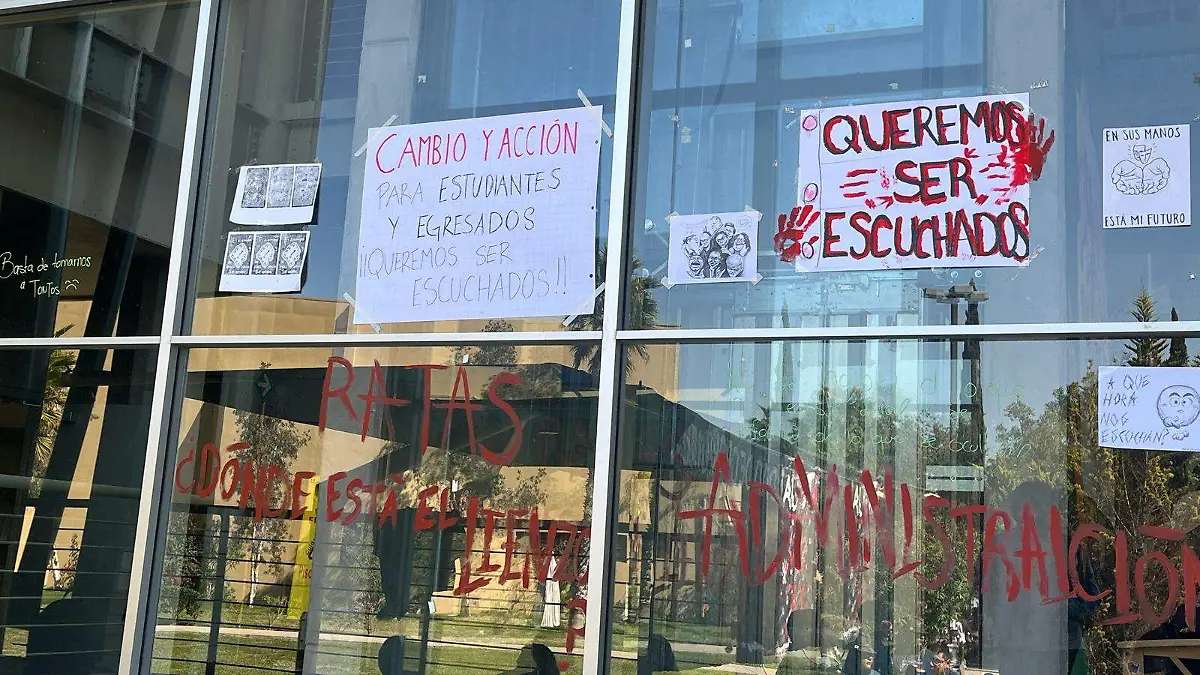 Basta de tomarnos
a Tontos
CAMBIO Y ACCIÓN
PARA ESTUDIANTES
Y EGRESADOS
¡¡QUEREMOS SER
ESCUCHADOS!!
QUEREMOS
SER
ESCUCHADOS
EN SUS MANOS
ESTÁ MI FUTURO
A QUE
HORA
NOS
ESCUCHAN?
RATAS
¿DÓNDE ESTÁ EL LIENZO
?
ADMINISTRACIÓN